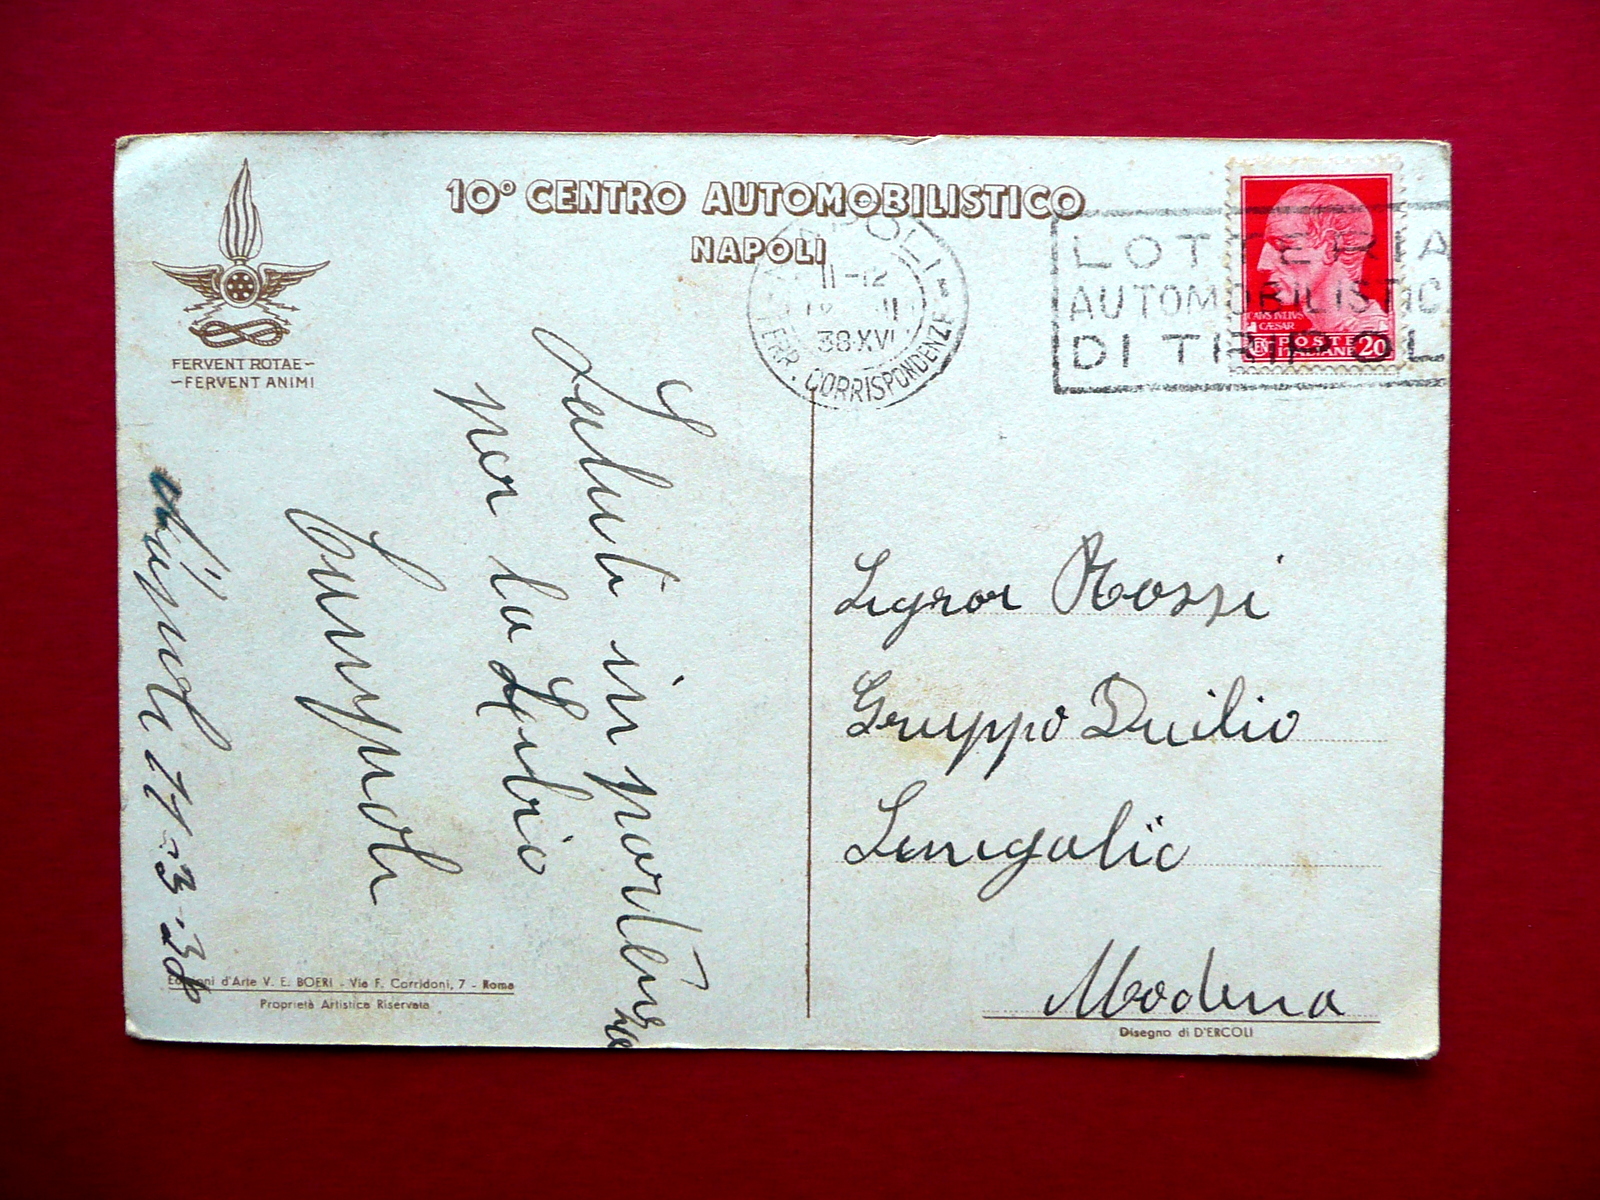 10° CENTRO AUTOMOBILISTICO
NAPOLI
FERVENT ROTAE~
~FERVENT ANIMI
NAPOLI
11-12
II
38 XVI
FERR. CORRISPONDENZE
LOTTERIA
AUTOMOBILISTICA
DI TRIPOLI
CAIVS IVLIVS
CÆSAR
POSTE
ITALIANE 20
Saluti in partenza
per la Libia
Napoli 11-3-38
Signor Rossi
Gruppo Duilio
Senegalia
Modena
Edizioni d'Arte V. E. BOERI - Via F. Corridoni, 7 - Roma
Proprietà Artistica Riservata
Disegno di D'ERCOLI